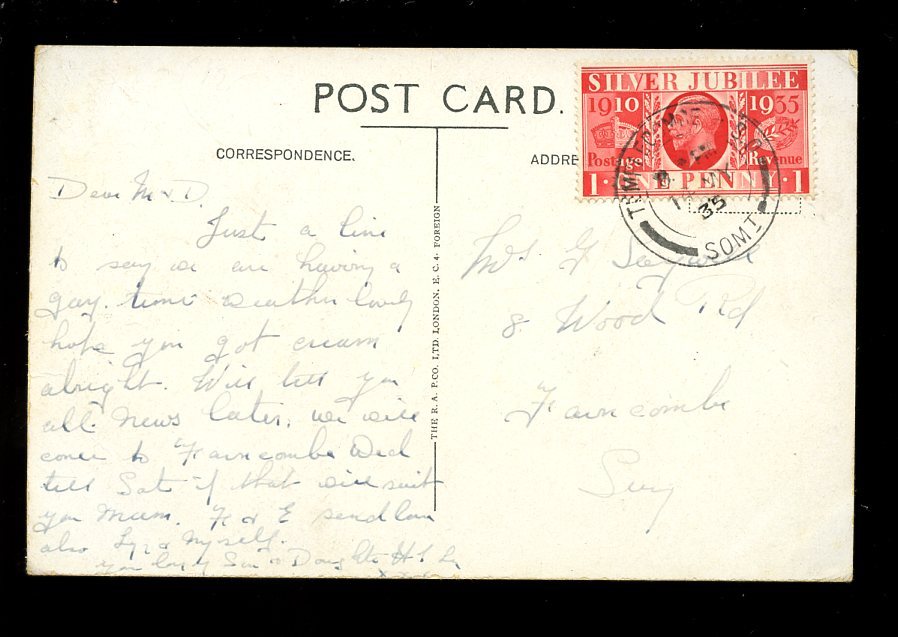 POST CARD.
CORRESPONDENCE.
ADDRE
SILVER JUBILEE
1910 1935
Postage Revenue
1 · ONE PENNY · 1
35
SOMT
THE R.A. P.CO. LTD. LONDON. E.C.4. FOREIGN
Dear M & D.
Just a line
to say we are having a
gay time weather lovely
hope you got cream
alright. Will tell you
all news later, we will
come to Farncombe Wed
till Sat if that will suit
you Mum. & E send love
also & Myself.
Son & Daughter
xxxx
Mrs G
8 Wood Rd
Farncombe